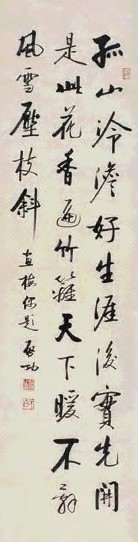 孤山冷澹好生涯後實先開
是此花香遍竹籬天下暖不辭
風雪壓枝斜
直梅保題啟功